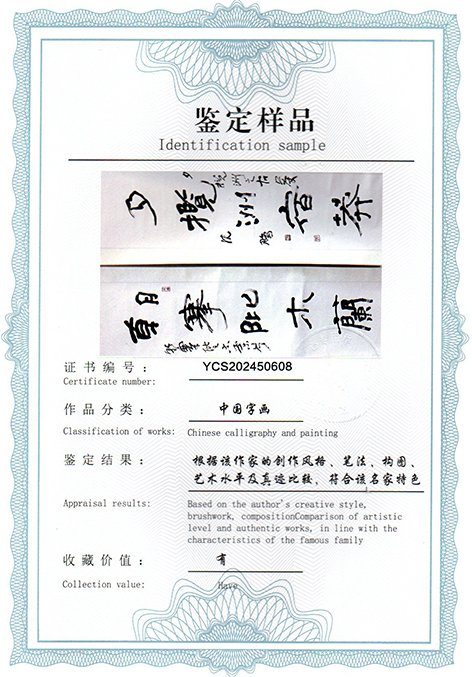 鉴定样品
Identification sample
夕攬洲宿莽
朝搴阰木蘭
证书编号： YCS202450608
Certificate number:
作品分类： 中国字画
Classification of works: Chinese calligraphy and painting
鉴定结果： 根据该作家的创作风格、笔法、构图、
艺术水平及真迹比较，符合该名家特色
Appraisal results: Based on the author's creative style,
brushwork, compositionComparison of artistic
level and authentic works, in line with the
characteristics of the famous family
收藏价值： 有
Collection value: Have